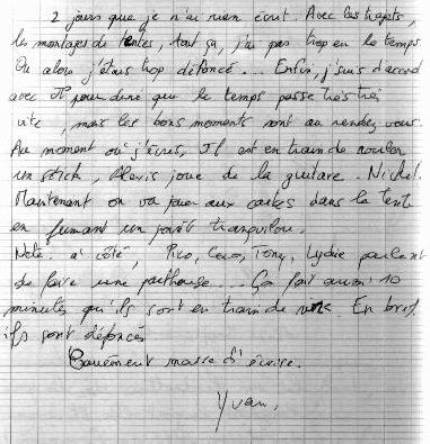 2 jours que je n'ai rien écrit. Avec les trajets,
les montages de tentes, tout ça, j'ai pas trop eu le temps
Ou alors j'étais trop défoncé... Enfin, j'suis d'accord
avec JP pour dire que le temps passe très très
vite, mais les bons moments sont au rendez vous.
Au moment où j'écris, JP est en train de rouler
un stick, Alexis joue de la guitare. Nickel.
Maintenant on va jouer aux cartes dans la tente
en fumant un joint tranquilou.
Note: à côté, Pico, Coco, Tony, Lydie parlent
de faire une partouse... Ça fait aumoi 10
minutes qu'ils sont en train de rire. En bref,
ils sont défoncés
marre d'écrire.
Yvan.